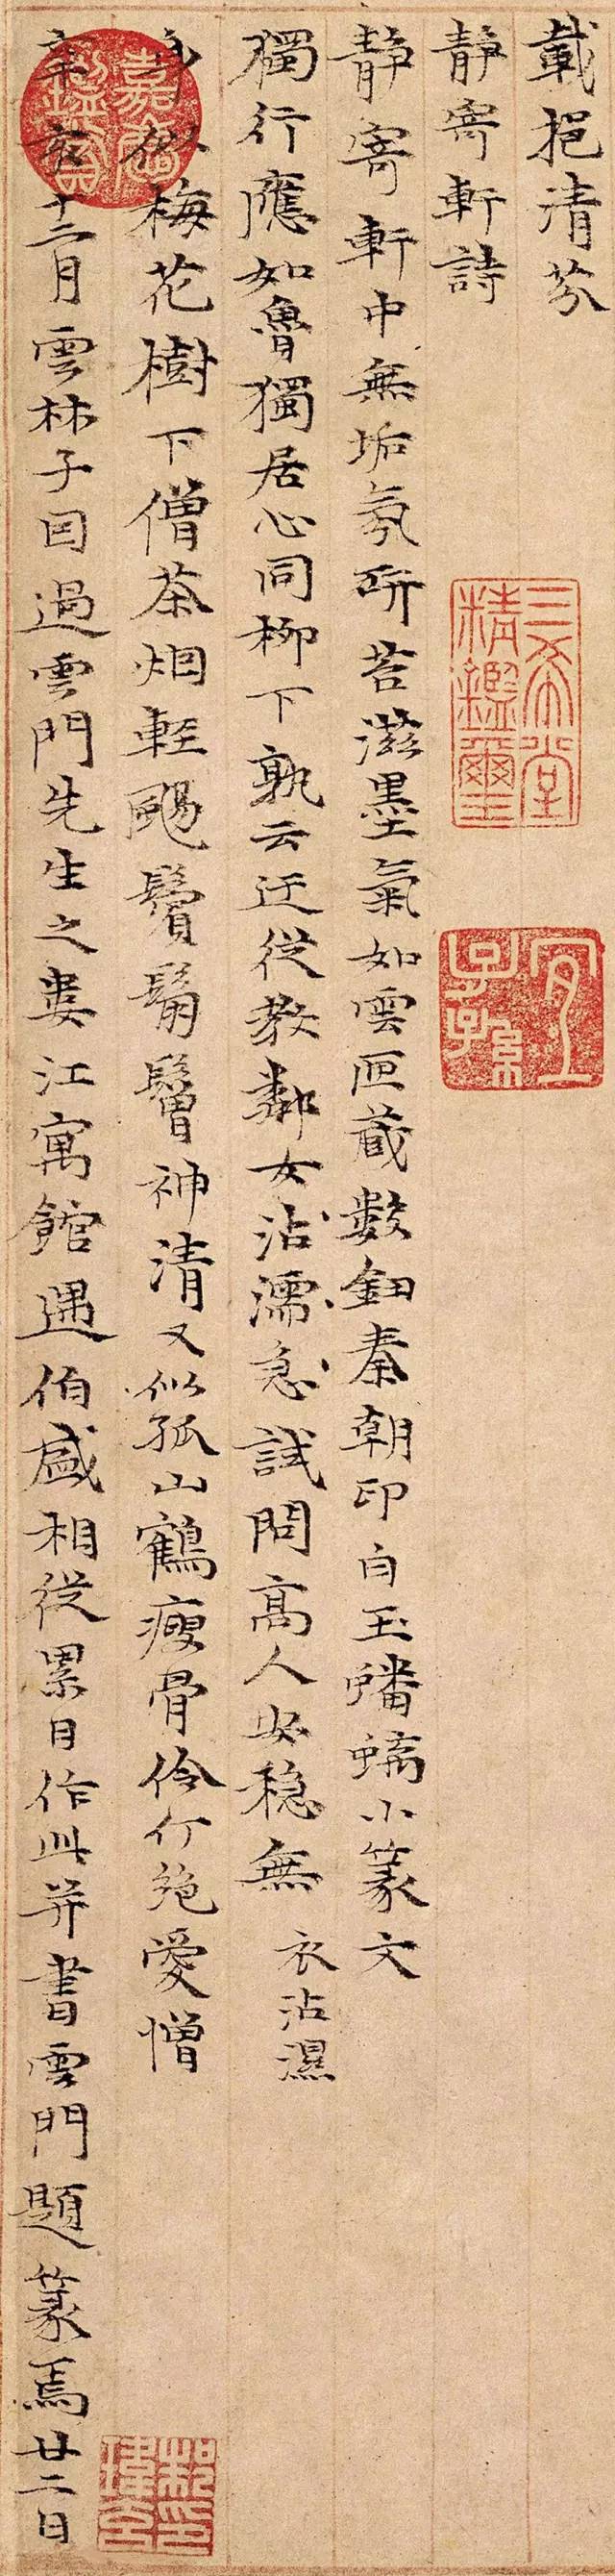 載挹清芬
靜寄軒詩
靜寄軒中無垢氛研苔滋墨氣如雲匣藏數鈕秦朝印白玉蟠螭小篆文
獨行應如魯獨居心同柳下孰云迂從教鄰女沾濡急試問高人安穩無 衣沾濕
身似梅花樹下僧茶烟輕颺鬢鬅鬙神清又似孤山鶴瘦骨伶仃絶愛憎
辛亥十二月雲林子因過雲門先生之婁江寓館遇伯盛相從累日作此并書雲門題篆焉廿二日
嘉慶鑑賞
三希堂精鑑璽
宜子孫